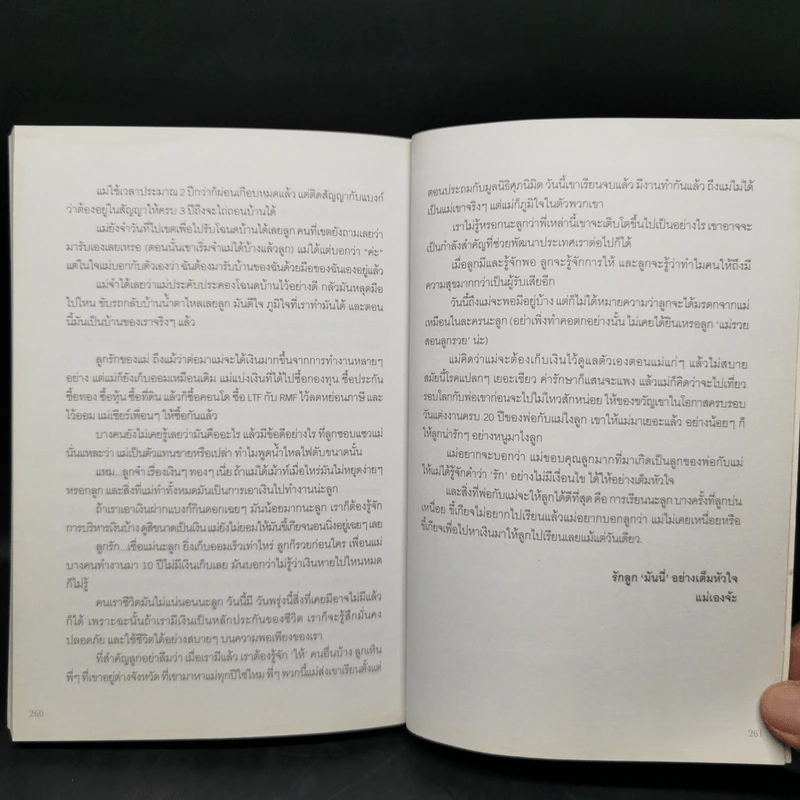 แม่ใช้เวลาประมาณ 2 ปีกว่าก็ผ่อนเกือบหมดแล้ว แต่ติดสัญญากับแบงก์
ว่าต้องอยู่ในสัญญาให้ครบ 3 ปีถึงจะไถ่ถอนบ้านได้
แม่ยังจำวันที่ไปเขตเพื่อไปรับโฉนดบ้านได้เลยลูก คนที่เขตยังถามเลยว่า
มารับเองเลยเหรอ (ตอนนั้นเขาเริ่มจำแม่ได้บ้างแล้วลูก) แม่ได้แต่บอกว่า “ค่ะ”
แต่ในใจแม่บอกกับตัวเองว่า ฉันต้องมารับบ้านของฉันด้วยมือของฉันเองอยู่แล้ว
แม่จำได้เลยว่าแม่ประคับประคองโฉนดบ้านไว้อย่างดี กลัวมันหลุดมือ
ไปไหน ขับรถกลับบ้านน้ำตาไหลเลยลูก มันดีใจ ภูมิใจที่เราทำมันได้ และตอน
นี้มันเป็นบ้านของเราจริงๆ แล้ว
ลูกรักของแม่ ถึงแม้ว่าต่อมาแม่จะได้เงินมากขึ้นจากการทำงานหลายๆ
อย่าง แต่แม่ก็ยังเก็บออมเหมือนเดิม แม่แบ่งเงินที่ได้ไปซื้อกองทุน ซื้อประกัน
ซื้อทอง ซื้อหุ้น ซื้อที่ดิน แล้วก็ซื้อคอนโด ซื้อ LTF กับ RMF ไว้ลดหย่อนภาษี และ
ไว้ออม แม่เชียร์เพื่อนๆ ให้ซื้อกันแล้ว
บางคนยังไม่เคยรู้เลยว่ามันคืออะไร แล้วมีข้อดีอย่างไร ที่ลูกชอบแซวแม่
นั่นแหละว่า แม่เป็นตัวแทนขายหรือเปล่า ทำไมพูดน้ำไหลไฟดับขนาดนั้น
แหม...ลูกจ๋า เรื่องเงินๆ ทองๆ เนี่ย ถ้าแม่ได้เม้าท์เมื่อไหร่มันไม่หยุดง่ายๆ
หรอกลูก และสิ่งที่แม่ทำทั้งหมดมันเป็นการเอาเงินไปทำงานน่ะลูก
ถ้าเราเอาเงินฝากแบงก์กินดอกเฉยๆ มันน้อยมากนะลูก เราก็ต้องรู้จัก
การบริหารเงินบ้าง ดูสิขนาดเป็นเงิน แม่ยังไม่ยอมให้มันขี้เกียจนอนนิ่งอยู่เฉยๆ เลย
ลูกรัก...เชื่อแม่นะลูก ยิ่งเก็บออมเร็วเท่าไหร่ ลูกก็รวยก่อนใคร เพื่อนแม่
บางคนทำงานมา 10 ปีไม่มีเงินเก็บเลย มันบอกว่าไม่รู้ว่าเงินหายไปไหนหมด
ก็ไม่รู้
คนเราชีวิตมันไม่แน่นอนนะลูก วันนี้มี วันพรุ่งนี้สิ่งที่เคยมีอาจไม่มีแล้ว
ก็ได้ เพราะฉะนั้นถ้าเรามีเงินเป็นหลักประกันของชีวิต เราก็จะรู้สึกมั่นคง
ปลอดภัย และใช้ชีวิตได้อย่างสบายๆ บนความพอเพียงของเรา
ที่สำคัญลูกอย่าลืมว่า เมื่อเรามีแล้ว เราต้องรู้จัก ‘ให้’ คนอื่นบ้าง ลูกเห็น
พี่ๆ ที่เขาอยู่ต่างจังหวัด ที่เขามาหาแม่ทุกปีใช่ไหม พี่ๆ พวกนี้แม่ส่งเขาเรียนตั้งแต่
260
ตอนประถมกับมูลนิธิศุภนิมิต วันนี้เขาเรียนจบแล้ว มีงานทำกันแล้ว ถึงแม่ไม่ได้
เป็นแม่เขาจริงๆ แต่แม่ก็ภูมิใจในตัวพวกเขา
เราไม่รู้หรอกนะลูกว่าพี่เหล่านี้เขาจะเติบโตขึ้นไปเป็นอย่างไร เขาอาจจะ
เป็นกำลังสำคัญที่ช่วยพัฒนาประเทศเราต่อไปก็ได้
เมื่อลูกมีและรู้จักพอ ลูกจะรู้จักการให้ และลูกจะรู้ว่าทำไมคนให้ถึงมี
ความสุขมากกว่าเป็นผู้รับเสียอีก
วันนี้ถึงแม่จะพอมีอยู่บ้าง แต่ก็ไม่ได้หมายความว่าลูกจะได้มรดกจากแม่
เหมือนในละครนะลูก (อย่าเพิ่งทำคอตกอย่างนั้น ไม่เคยได้ยินเหรอลูก ‘แม่รวย
สอนลูกรวย’ น่ะ)
แม่คิดว่าแม่จะต้องเก็บเงินไว้ดูแลตัวเองตอนแม่แก่ๆ แล้วไม่สบาย
สมัยนี้โรคแปลกๆ เยอะเชียว ค่ารักษาก็แสนจะแพง แล้วแม่ก็คิดว่าจะไปเที่ยว
รอบโลกกับพ่อเขาก่อนจะไปไม่ไหวสักหน่อย ให้ของขวัญเขาในโอกาสครบรอบ
วันแต่งงานครบ 20 ปีของพ่อกับแม่ไงลูก เขาให้แม่มาเยอะแล้ว อย่างน้อยๆ ก็
ให้ลูกน่ารักๆ อย่างหนูมาไงลูก
แม่อยากจะบอกว่า แม่ขอบคุณลูกมากที่มาเกิดเป็นลูกของพ่อกับแม่
ให้แม่ได้รู้จักคำว่า ‘รัก’ อย่างไม่มีเงื่อนไข ได้ให้อย่างเต็มหัวใจ
และสิ่งที่พ่อกับแม่จะให้ลูกได้ดีที่สุด คือ การเรียนนะลูก บางครั้งที่ลูกบ่น
เหนื่อย ขี้เกียจไม่อยากไปเรียนแล้วแม่อยากบอกลูกว่า แม่ไม่เคยเหนื่อยหรือ
ขี้เกียจเพื่อไปหาเงินมาให้ลูกไปเรียนเลยแม้แต่วันเดียว.
รักลูก ‘มันนี่’ อย่างเต็มหัวใจ
แม่เองจ้ะ
261